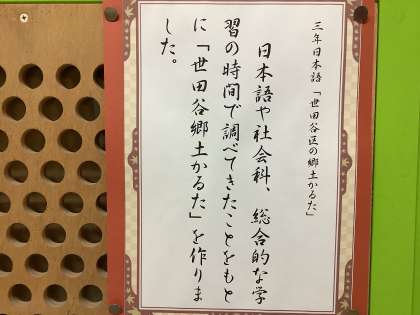 三年日本語「世田谷区の郷土かるた」
日本語や社会科、総合的な学
習の時間で調べてきたことをもと
に「世田谷郷土かるた」を作りま
した。